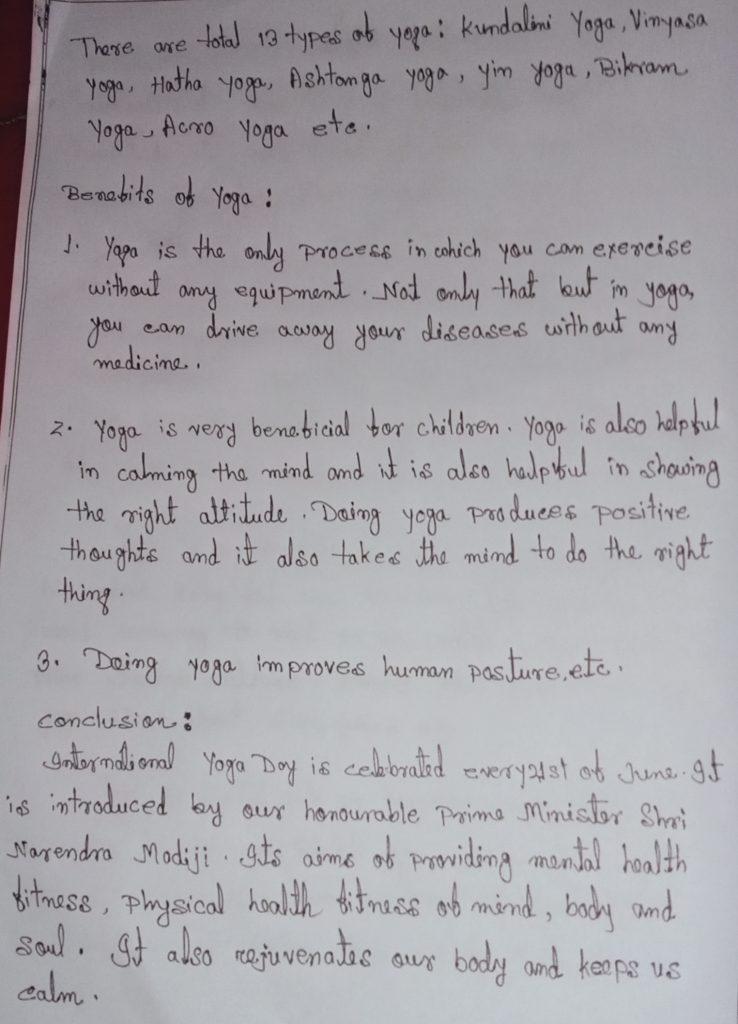 There are total 13 types of yoga: Kundalini Yoga, Vinyasa
yoga, Hatha yoga, Ashtanga yoga, yin yoga, Bikram
Yoga, Acro Yoga etc.
Benefits of Yoga:
1. Yoga is the only process in which you can exercise
without any equipment. Not only that but in yoga,
you can drive away your diseases without any
medicine.
2. Yoga is very beneficial for children. Yoga is also helpful
in calming the mind and it is also helpful in showing
the right attitude. Doing yoga produces positive
thoughts and it also takes the mind to do the right
thing.
3. Doing yoga improves human posture, etc.
Conclusion:
International Yoga Day is celebrated every 21st of June. It
is introduced by our honourable Prime Minister Shri
Narendra Modiji. Its aims of providing mental health
fitness, physical health fitness of mind, body and
soul. It also rejuvenates our body and keeps us
calm.